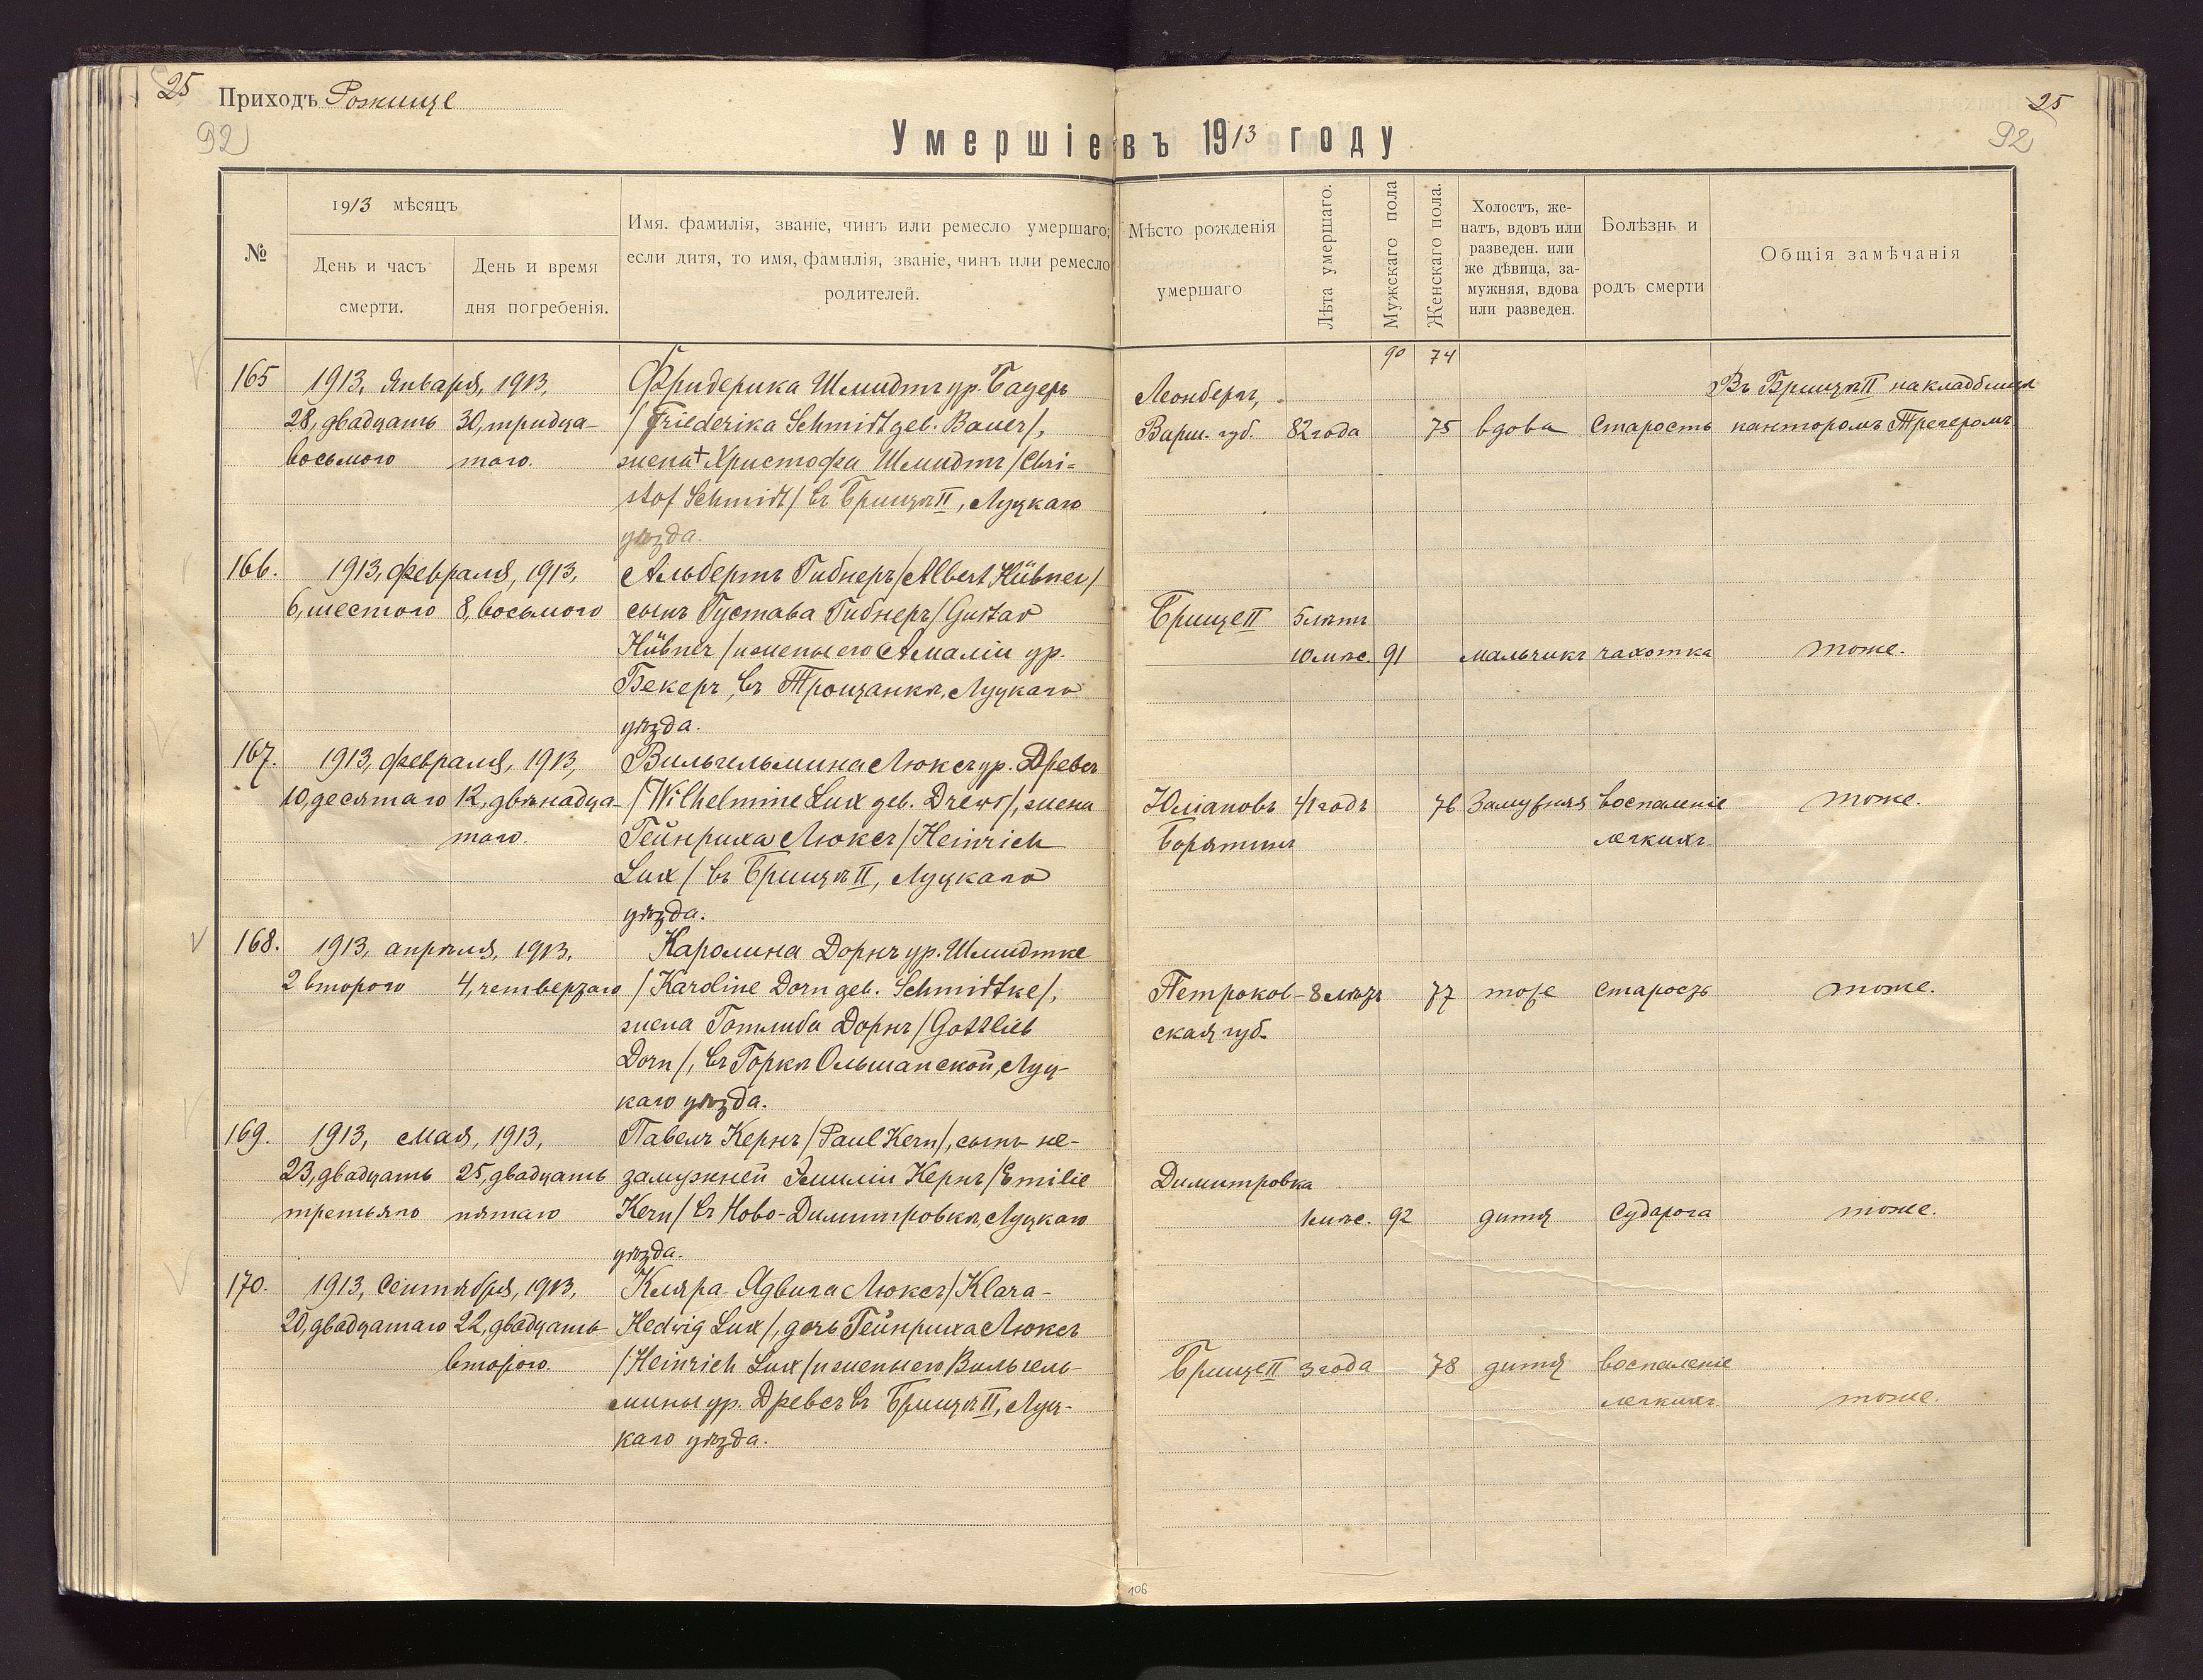 25 Приходъ Рожище
92
25
92
Умершіе въ 1913 году
№
1913 мѣсяцъ
День и часъ
смерти.
День и время
дня погребенія.
Имя, фамилія, званіе, чинъ или ремесло умершаго;
если дитя, то имя, фамилія, званіе, чинъ или ремесло
родителей.
Мѣсто рожденія
умершаго
Лѣта умершаго.
Мужскаго пола
Женскаго пола.
Холостъ, же-
натъ, вдовъ или
разведен. или
же дѣвица, за-
мужняя, вдова
или разведен.
Болѣзнь и
родъ смерти
Общія замѣчанія
90 74
165 1913, Января, 1913,
28, двадцать 30, тридца-
восьмого таго.
Фридерика Шмидтъ ур. Бауеръ
/Friederika Schmidt geb. Bauer/,
жена † Христофа Шмидтъ /Chri-
stof Schmidt/ въ Брищѣ II, Луцкаго
уѣзда.
Леонбергъ,
Варш. губ. 82 года 75 вдова Старость
Въ Брищѣ II на кладбищѣ
канторомъ Трегеромъ
166. 1913, февраля, 1913,
6, шестого 8, восьмого
Альбертъ Гибнеръ /Albert Hübner/
сынъ Густава Гибнеръ /Gustav
Hübner/ и жены его Амаліи ур.
Бекеръ, въ Трощанкѣ, Луцкаго
уѣзда.
Брище II 5 лѣтъ
10 мѣс. 91 мальчикъ чахотка тоже.
167. 1913, февраля, 1913,
10, десятаго 12, двѣнадца-
таго.
Вильгельмина Люксъ ур. Древсъ
/Wilhelmine Lux geb. Drews/, жена
Гейнриха Люксъ /Heinrich
Lux/ въ Брищѣ II, Луцкаго
уѣзда.
Юліановъ 41 годъ 76 Замужняя воспаленіе тоже.
Борятинъ легкихъ.
168. 1913, апрѣля, 1913,
2 второго 4, четвертаго
Каролина Дорнъ ур. Шмидтке
/Karoline Dorn geb. Schmidtke/,
жена Готлиба Дорнъ /Gottlieb
Dorn/, въ Горкѣ Ольшанской, Луц-
каго уѣзда.
Петроков- 8 лѣтъ 77 тоже старость тоже.
ская губ.
169. 1913, мая, 1913,
23, двадцать 25, двадцать
третьяго пятаго
Павелъ Кернъ /Paul Kern/, сынъ не-
замужней Эмиліи Кернъ /Emilie
Kern/ въ Ново-Димитровкѣ, Луцкаго
уѣзда.
Димитровка
1 мѣс. 92 дитя Судорога тоже.
170. 1913, Сентября, 1913,
20, двадцатаго 22, двадцать
второго.
Клара-Ядвига Люксъ /Klara-
Hedwig Lux/, дочь Гейнриха Люксъ
/Heinrich Lux/ и жены его Вильгель-
мины ур. Древсъ въ Брищѣ II, Луц-
каго уѣзда.
Брище II 3 года 78 дитя воспаленіе
легкихъ. тоже.
106